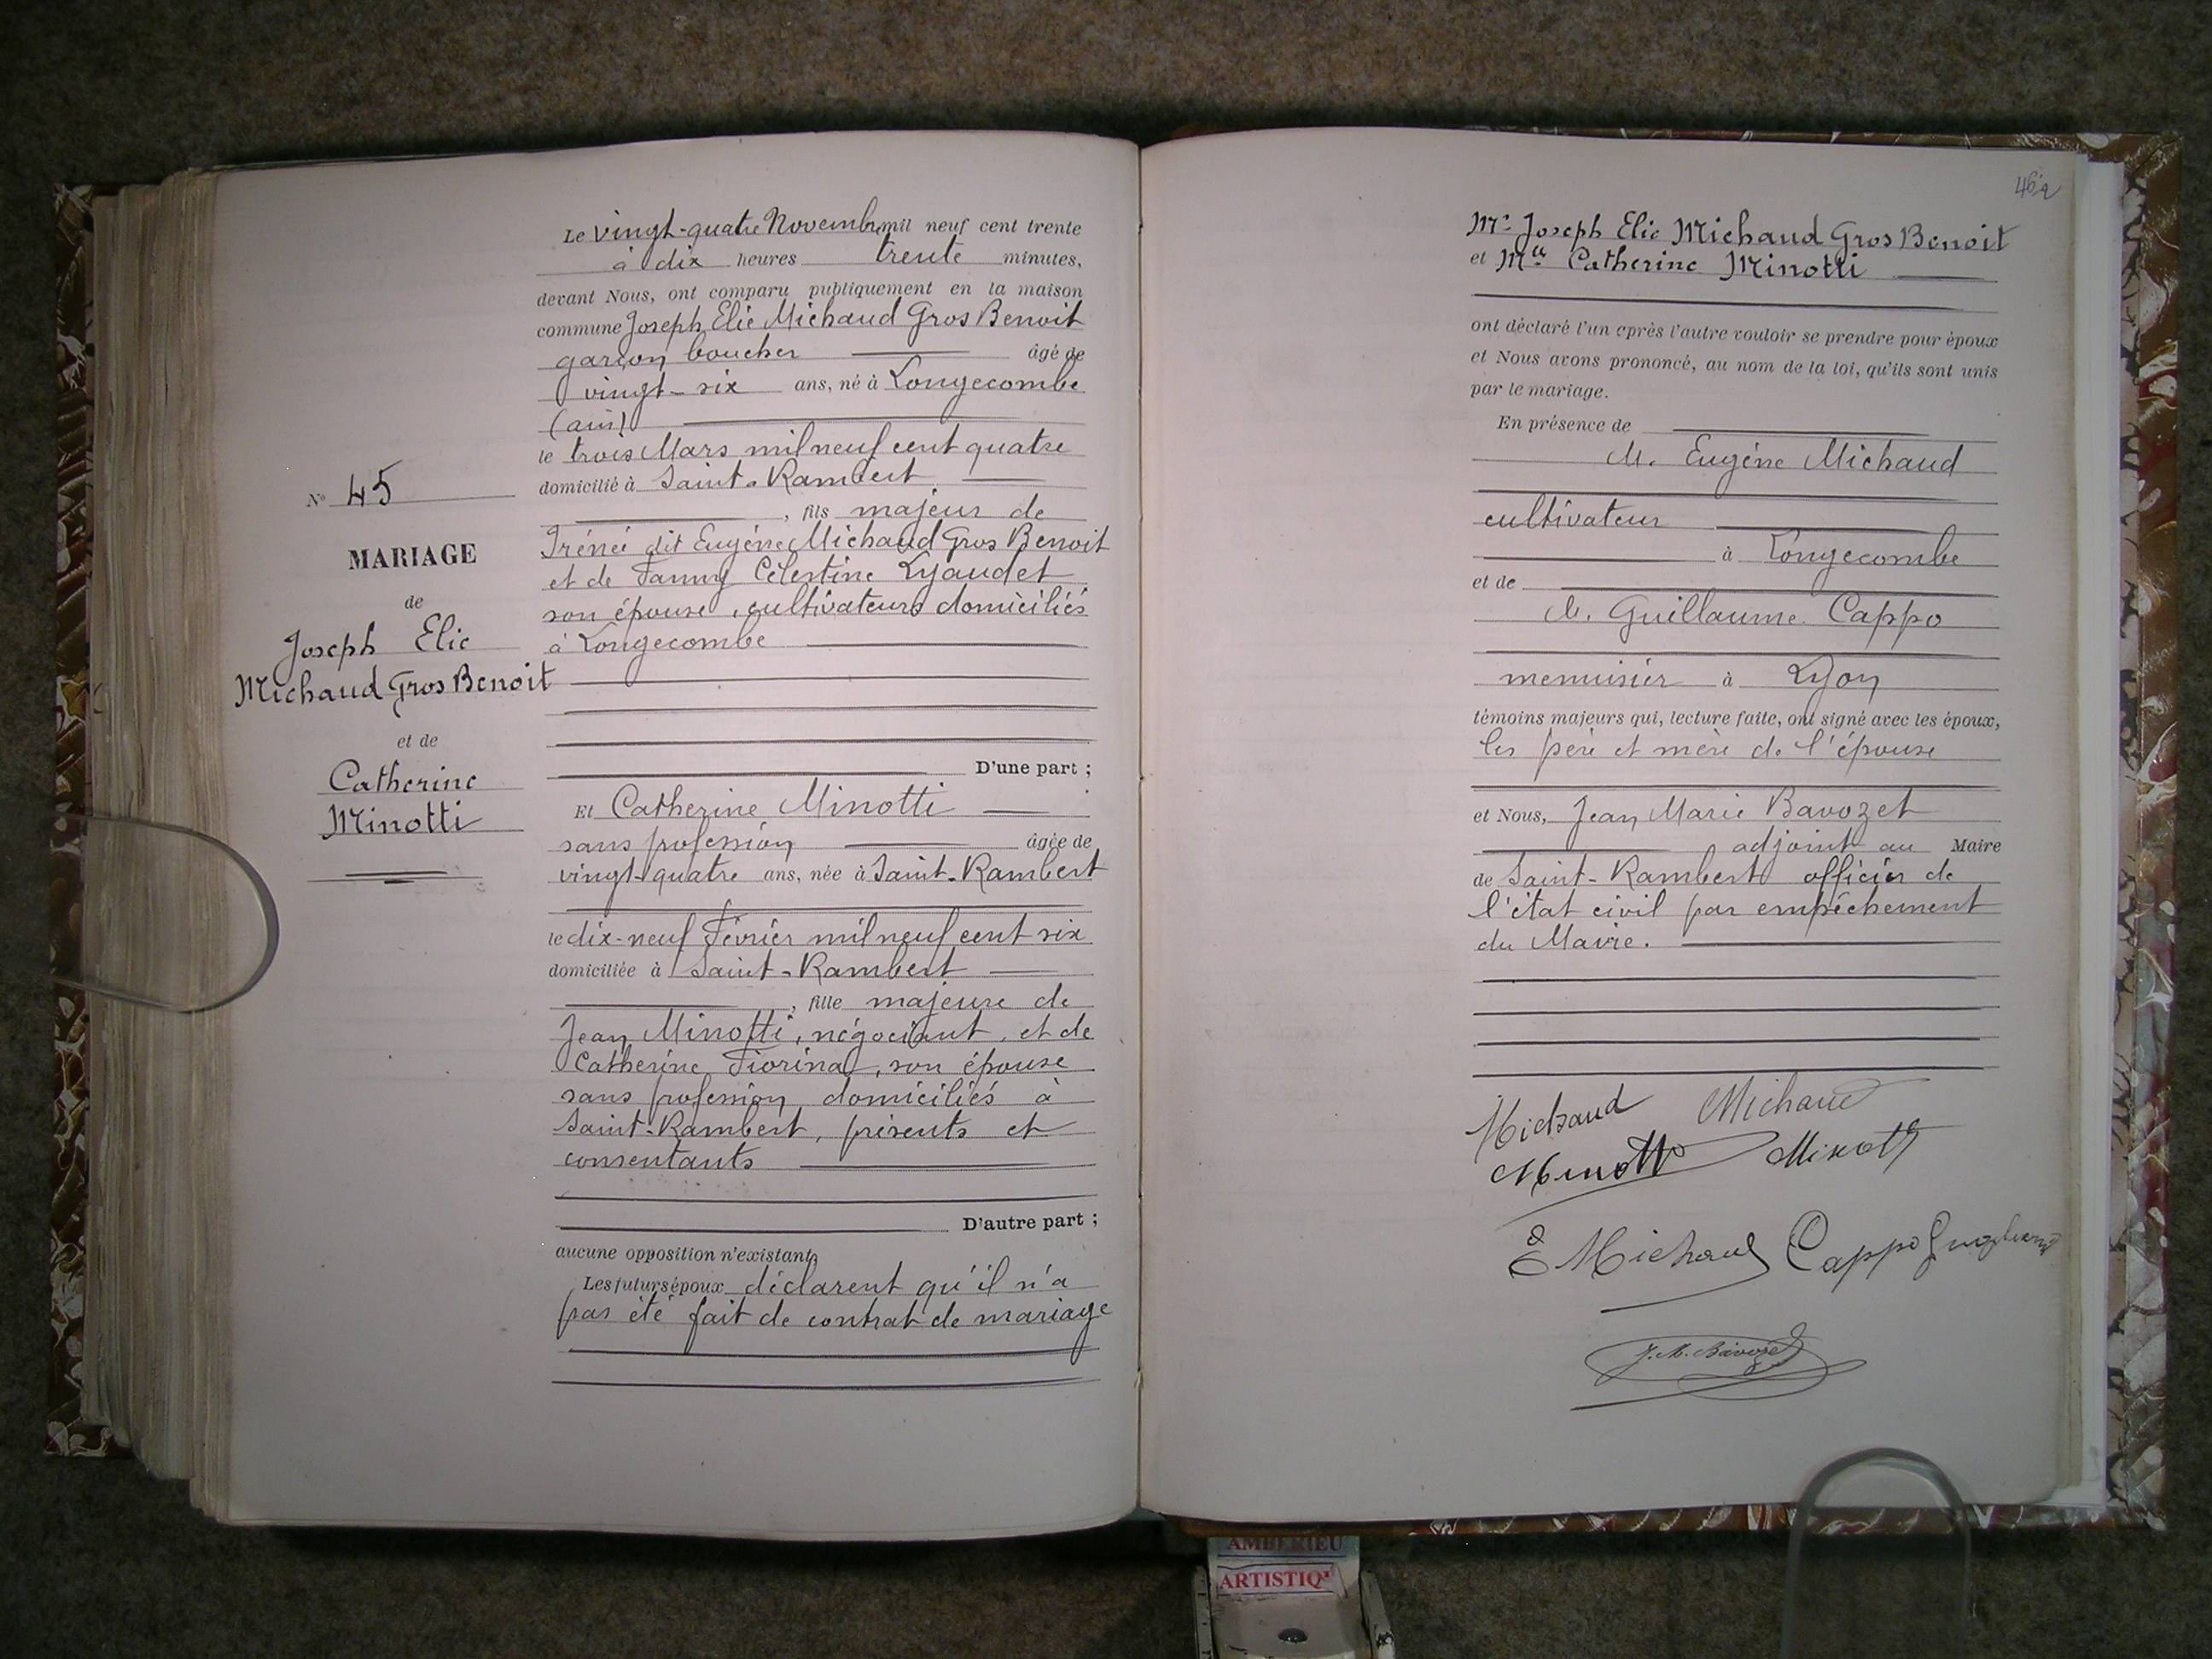 N° 45
MARIAGE
de
Joseph Elie
Michaud Gros Benoit
et de
Catherine
Minotti
Le vingt-quatre Novembre mil neuf cent trente
à dix heures trente minutes,
devant Nous, ont comparu publiquement en la maison
commune Joseph Elie Michaud Gros Benoit
garçon boucher âgé de
vingt-six ans, né à Longecombe
(ain)
le trois Mars mil neuf cent quatre
domicilié à Saint-Rambert
, fils majeur de
Irénée dit Eugène Michaud Gros Benoit
et de Fanny Célestine Lyaudet
son épouse, cultivateurs domiciliés
à Longecombe
D'une part ;
Et Catherine Minotti
sans profession âgée de
vingt-quatre ans, née à Saint-Rambert
le dix-neuf Février mil neuf cent six
domiciliée à Saint-Rambert
, fille majeure de
Jean Minotti, négociant, et de
Catherine Fiorina, son épouse
sans profession domiciliés à
Saint-Rambert, présents et
consentants
D'autre part ;
aucune opposition n'existant,
Les futurs époux déclarent qu'il n'a
pas été fait de contrat de mariage
462
Mr Joseph Elie Michaud Gros Benoit
et Mlle Catherine Minotti
ont déclaré l'un après l'autre vouloir se prendre pour époux
et Nous avons prononcé, au nom de la loi, qu'ils sont unis
par le mariage.
En présence de
M. Eugène Michaud
cultivateur
à Longecombe
et de
M. Guillaume Cappo
menuisier à Lyon
témoins majeurs qui, lecture faite, ont signé avec les époux,
les père et mère de l'épouse
et Nous, Jean Marie Bavozet
adjoint au Maire
de Saint-Rambert officier de
l'état civil par empêchement
du Maire.
Michaud Michaud
Minotti Minotti
E Michaud Cappo
J. M. Bavozet
AMBERIEU
ARTISTIQ